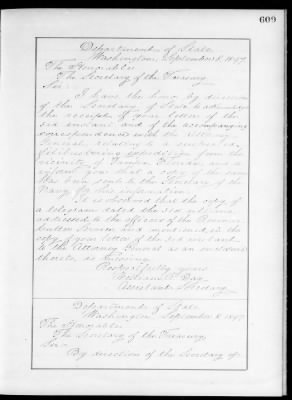 609
Department of State
Washington, September 8, 1897
The Honorable
The Secretary of the Treasury
Sir:
I have the honor, by direction
of the Secretary of State to acknowledge
the receipt of your letter of the
3rd instant and of the accompanying
correspondence with the Attorney
General, relating to a
filibustering expedition from the
vicinity of Tampa, Florida, and to
inform you that a copy of the same
has been sent to the Secretary of the
Navy for his information.
It is observed that the copy of
a telegram dated the 3rd
addressed to the officer of the Revenue
Cutter and mentioned in the
copy of your letter of the 3rd instant
to the Attorney General as an enclosure
thereto, is missing.
Respectfully yours
William R. Day
Assistant Secretary
Department of State
Washington, September 8, 1897
The Honorable
The Secretary of the Treasury,
Sir:
By direction of the Secretary of